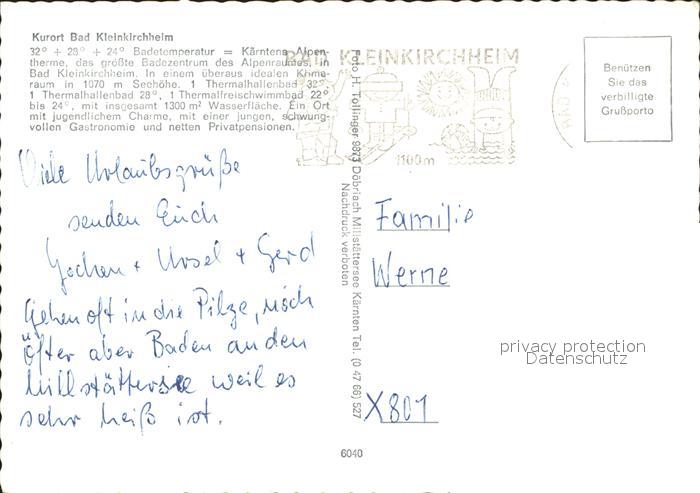 Kurort Bad Kleinkirchheim
32° + 28° + 24° Badetemperatur = Kärntens Alpen-
therme, das größte Badezentrum des Alpenraumes, in
Bad Kleinkirchheim. In einem überaus idealen Klima-
raum in 1070 m Seehöhe. 1 Thermalhallenbad 32°,
1 Thermalhallenbad 28°, 1 Thermalfreischwimmbad 22°
bis 24°, mit insgesamt 1300 m² Wasserfläche. Ein Ort
mit jugendlichem Charme, mit einer jungen, schwung-
vollen Gastronomie und netten Privatpensionen.
Viele Urlaubsgrüße
senden Euch
Jochen + Ursel + Gerd
Gehen oft in die Pilze, noch
öfter aber Baden an den
Millstättersee weil es
sehr heiß ist.
Foto H. Tollinger 9873 Döbriach Millstättersee Kärnten Tel. (0 47 66) 527
Nachdruck verboten
BAD KLEINKIRCHHEIM
1100m
BAD
Benützen
Sie das
verbilligte
Grußporto
Familie
Werne
privacy protection
Datenschutz
X801
6040